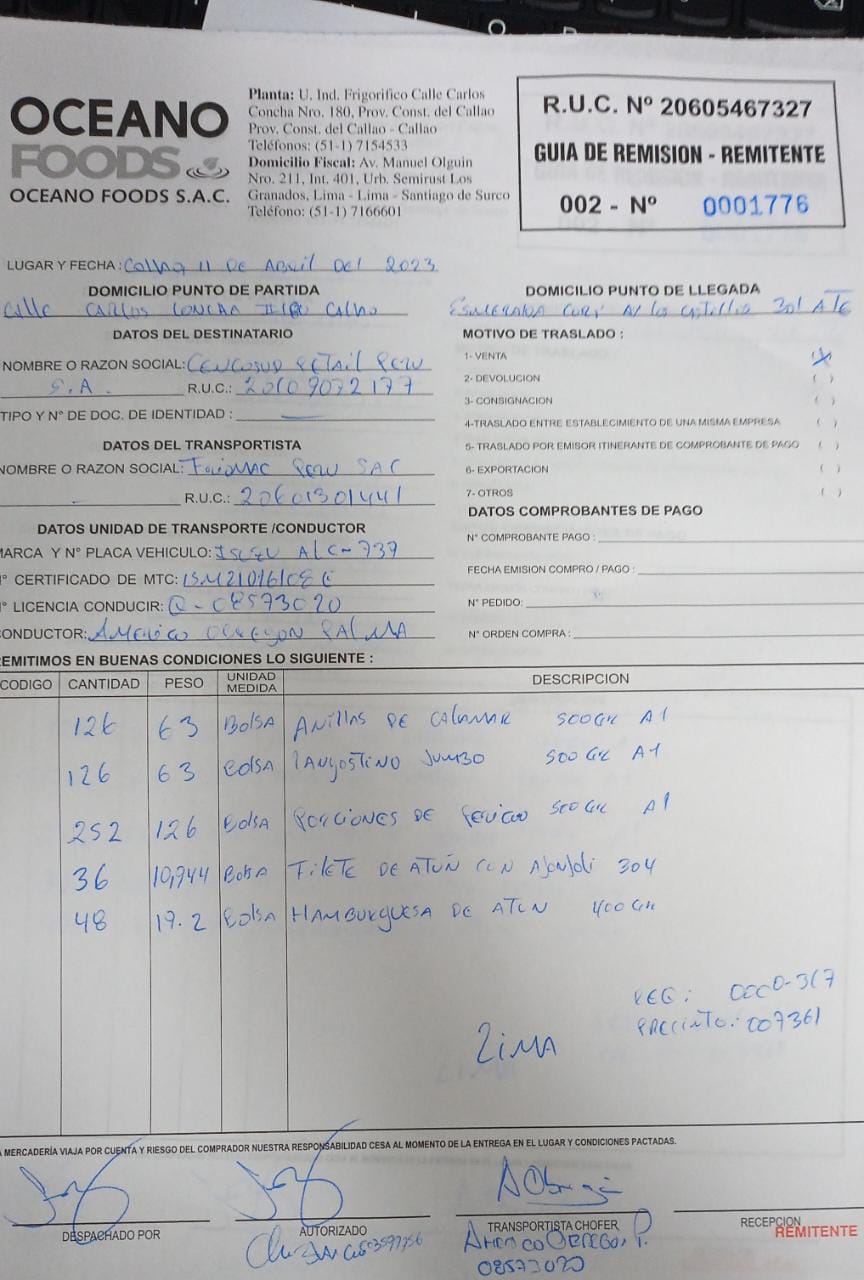 OCEANO
FOODS
OCEANO FOODS S.A.C.
Planta: U. Ind. Frigorifico Calle Carlos
Concha Nro. 180, Prov. Const. del Callao
Prov. Const. del Callao - Callao
Teléfonos: (51-1) 7154533
Domicilio Fiscal: Av. Manuel Olguin
Nro. 211, Int. 401, Urb. Semirust Los
Granados, Lima - Lima - Santiago de Surco
Teléfono: (51-1) 7166601
R.U.C. Nº 20605467327
GUIA DE REMISION - REMITENTE
002 - Nº 0001776
LUGAR Y FECHA: Callao 11 DE ABRil DEl 2023
DOMICILIO PUNTO DE PARTIDA
Calle CARlos CONCHA Callao
DOMICILIO PUNTO DE LLEGADA
ESMERALDA 301 ATE
DATOS DEL DESTINATARIO
NOMBRE O RAZON SOCIAL: CENCOSUD RETAIL PERU
S.A. R.U.C.: 20109072177
TIPO Y Nº DE DOC. DE IDENTIDAD :
MOTIVO DE TRASLADO :
1- VENTA (X)
2- DEVOLUCION ( )
3- CONSIGNACION ( )
4-TRASLADO ENTRE ESTABLECIMIENTO DE UNA MISMA EMPRESA ( )
5- TRASLADO POR EMISOR ITINERANTE DE COMPROBANTE DE PAGO ( )
6- EXPORTACION ( )
7- OTROS ( )
DATOS DEL TRANSPORTISTA
NOMBRE O RAZON SOCIAL: PERU SAC
R.U.C.: 20601301441
DATOS UNIDAD DE TRANSPORTE /CONDUCTOR
MARCA Y Nº PLACA VEHICULO: ISUZU AlC-737
Nº CERTIFICADO DE MTC:
Nº LICENCIA CONDUCIR: Q-08573020
CONDUCTOR: AMERICO OBREGON PALMA
DATOS COMPROBANTES DE PAGO
Nº COMPROBANTE PAGO :
FECHA EMISION COMPRO / PAGO :
Nº PEDIDO:
Nº ORDEN COMPRA :
REMITIMOS EN BUENAS CONDICIONES LO SIGUIENTE :
CODIGO CANTIDAD PESO UNIDAD MEDIDA DESCRIPCION
126 63 BolsA ANillAS DE CAlAMAR 500GR A1
126 63 BolsA lANgOSTINO JUMBO 500 GR A1
252 126 BolsA PORCIONES DE PERICO 500 GR A1
36 10,944 BolsA FilETE DE ATUN CON AJONJOli 304
48 19.2 BolsA HAMBURgUESA DE ATUN 400 GR
REG: 0000-317
PRECINTO: 007361
LIMA
LA MERCADERÍA VIAJA POR CUENTA Y RIESGO DEL COMPRADOR NUESTRA RESPONSABILIDAD CESA AL MOMENTO DE LA ENTREGA EN EL LUGAR Y CONDICIONES PACTADAS.
DESPACHADO POR
AUTORIZADO
TRANSPORTISTA CHOFER
AMERICO OBREGON P.
08573020
RECEPCION
REMITENTE